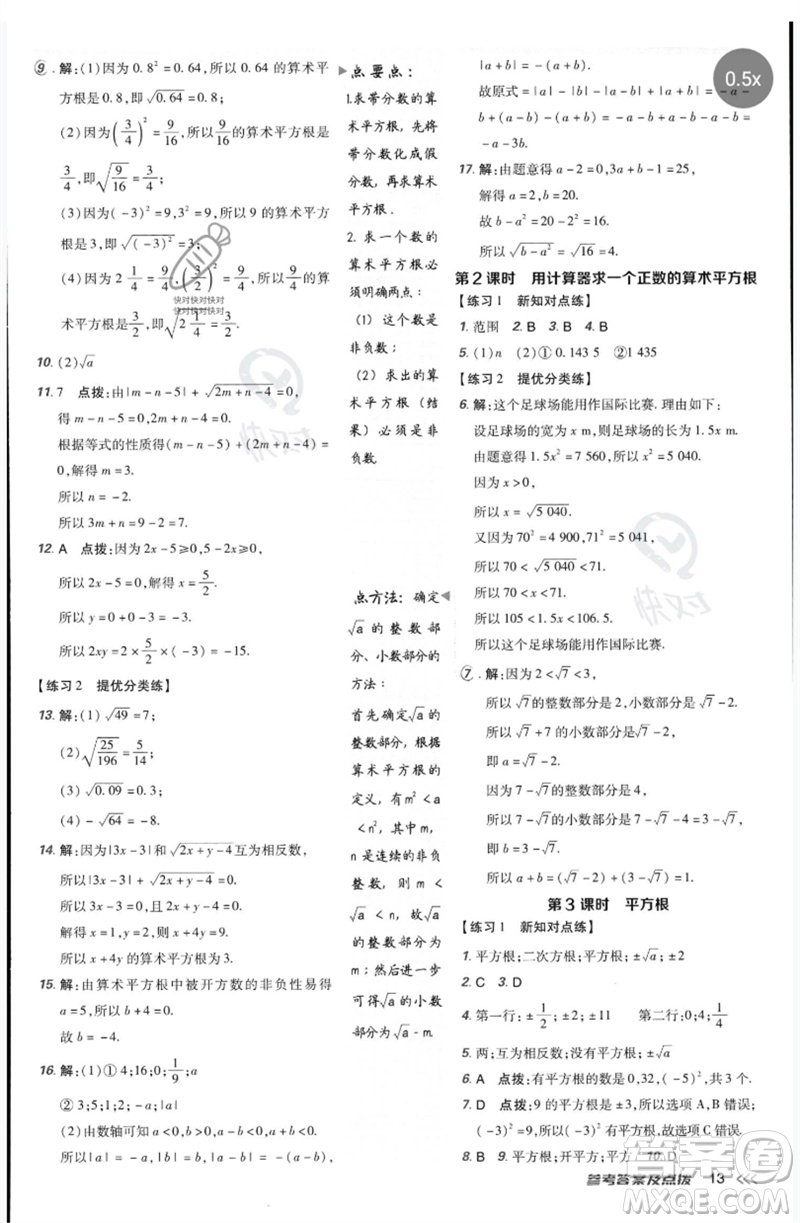 ⑨. 解:(1)因为 0.8² = 0.64,所以 0.64 的算术平
方根是 0.8,即√0.64 = 0.8;
(2)因为(3/4)² = 9/16,所以 9/16 的算术平方根是
3/4,即√(9/16) = 3/4;
(3)因为(-3)² = 9,3² = 9,所以 9 的算术平方
根是 3,即√((-3)²) = 3;
(4)因为 2 1/4 = 9/4,(3/2)² = 9/4,所以 9/4 的算
术平方根是 3/2,即√(2 1/4) = √(9/4) = 3/2.
10. (2)√a
11. 7 点拨:由|m-n-5| + √(2m+n-4) = 0,
得 m-n-5=0,2m+n-4=0.
根据等式的性质得(m-n-5)+(2m+n-4)
=0,解得 m=3.
所以 n=-2.
所以 3m+n=9-2=7.
12. A 点拨:因为 2x-5≥0,5-2x≥0,
所以 2x-5=0,解得 x=5/2.
所以 y=0+0-3=-3.
所以 2xy=2×5/2×(-3)=-15.
【练习 2 提优分类练】
13. 解:(1)√49=7;
(2)√(25/196)=5/14;
(3)√0.09=0.3;
(4)-√64=-8.
14. 解:因为|3x-3|和√(2x+y-4)互为相反数,
所以|3x-3|+√(2x+y-4)=0.
所以 3x-3=0,2x+y-4=0.
解得 x=1,y=2.
所以 x+4y 的算术平方根为 3.
15. 解:由算术平方根中被开方数的非负性易得
a=5,所以 b+4=0.
故 b=-4.
16. 解:(1)① 4;16;0;1/9;a
② 3;5;1;2;-a;|a|
(2)由数轴可知 a<0,b>0,a-b<0.
所以|a|=-a,|b|=b,
点要点:
1.求带分数的算
术平方根,先将
带分数化成假
分数,再求算术
平方根.
2. 求一个数的
算术平方根必
须明确两点:
(1) 这个数是
非负数;
(2) 求出的算
术平方根(结
果)必须是非
负数
点方法:确定
√a 的整数部
分、小数部分的
方法:
首先确定√a的
整数部分,根据
算术平方根的
定义,有 m²<a
<n²,其中 m,
n 是连续的非负
整数,则 m<
√a<n,故√a
的整数部分为
m;然后进一步
可得√a的小数
部分为√a-m.
|a-b|=-(a-b),
|a+b|=-(a+b).
故原式=|a|-|b|-|a-b|+|a+b|=-a-
b+(a-b)-(a+b)=-a-b+a-b-a-b=
-a-3b.
17. 解:由题意得 a-2=0,3a+b-1=25,
解得 a=2,b=20.
故 b-a²=20-2²=16.
所以√(b-a²)=√16=4.
0.5x
第 2 课时 用计算器求一个正数的算术平方根
【练习 1 新知对点练】
1. 范围 2. B 3. B 4. B
5. (1)n (2)①0.143 5 ②1 435
【练习 2 提优分类练】
6. 解:这个足球场能用作国际比赛. 理由如下:
设足球场的宽为 x m,则足球场的长为 1.5x m.
由题意得 1.5x²=7 560,所以 x²=5 040.
因为 x>0,
所以 x=√5 040.
又因为 70²=4 900,71²=5 041,
所以 70<√5 040<71.
所以 70<x<71.
所以 105<1.5x<106.5.
所以这个足球场能用作国际比赛.
⑦. 解:因为 2<√7<3,
所以√7的整数部分是 2,小数部分是√7-2,
即 a=√7-2.
因为 7-√7的整数部分是 4,
所以 7-√7的小数部分是 7-√7-4=3-√7,
即 b=3-√7.
所以 a+b=(√7-2)+(3-√7)=1.
第 3 课时 平方根
【练习 1 新知对点练】
1. 平方根;二次方根;平方根;±√a;±2
2. C 3. D
4. 第一行:±1/2;±2;±11 第二行:0;1/4
5. 两;互为相反数;没有平方根;±√a
6. A 点拨:有平方根的数为 0,32,(-5)²,共 3 个.
7. D 点拨:9 的平方根是±3,所以选项 A,B 错误;
(-3)²=9,所以选项 C 错误.
8. B 9. 平方根;开平方;平方 10. D
参考答案及点拨 13
快对快对快对
快对快对快对